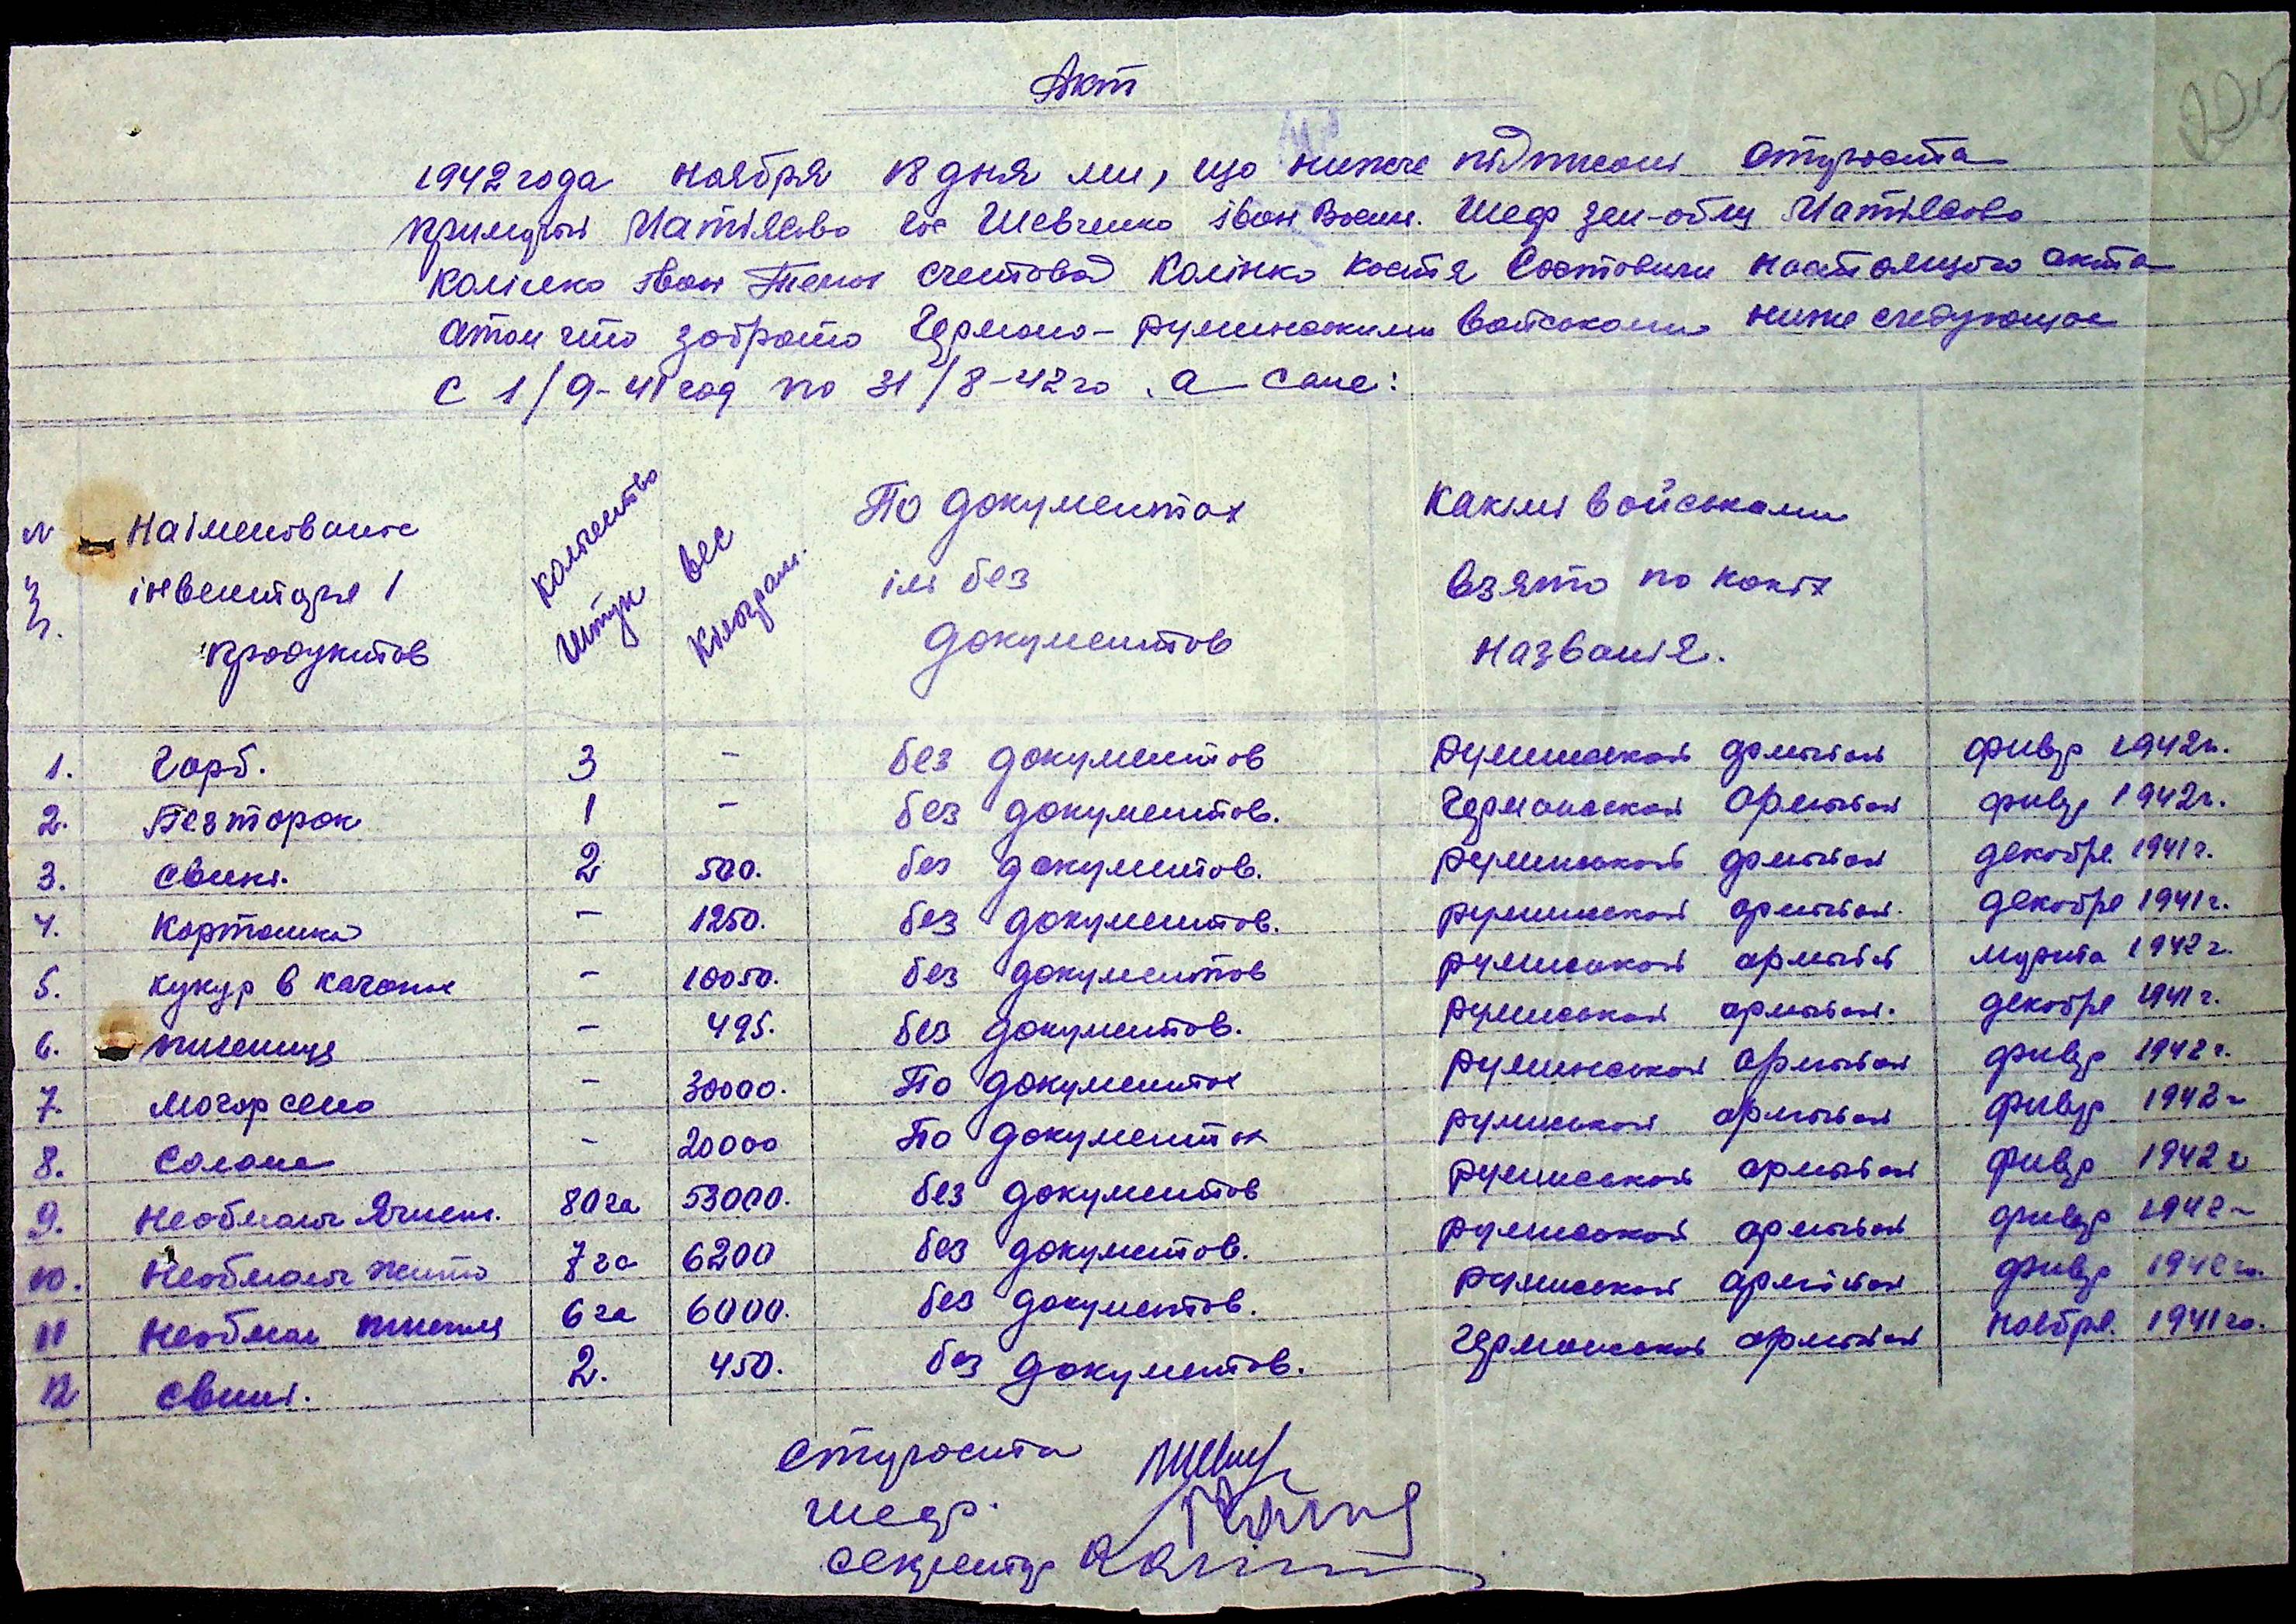 Акт
1942 года ноября 18 дня ми, що нижче підписані староста
примарії Матіясово Шевченко Іван Васил. Шеф зем-общ Матіясово
Калінко Іван счетовод Калінко Костя Состовили настоящого акта
отом что забрато Германо-румынскими войсками ниже следующое
с 1/9-41 год по 31/8-42 го. а саме:
N Наіменованіе Количество Вес По документах Какімі войськами
інвентаря і Штук Кілограм. ілі без взято по какіх
продуктов документов названія.
1. Гарб. 3 – без документов румынской армыюй фивр 1942г.
2. Безторок 1 – без документов. Германской армыюй фивр 1942г.
3. Свині. 2 500. без документов. румынской армыюй декобре 1941г.
4. Картошка – 1250. без документов. румынской армыюй. декобре 1941г.
5. кукур в качане – 10050. без документов румынской армыюй марта 1942г.
6. пшениця – 495. без документов. румынской армыюй. декобре 1941г.
7. Могар сено – 30000. По документах румынской армыюй фивр 1942г.
8. Солома – 20000 По документах румынской армыюй фивр 1942г
9. Необмолог Ячмен. 80га 53000. без документов румынской армыюй фивр 1942г
10. Необмолог жито 7га 6200 без документов. румынской армыюй фивр 1942г
11 Необмол пшениця 6га 6000. без документов. румынской армыюй фивр 1942го.
12 Свині. 2. 450. без документов. Германской армыюй ноября. 1941го.
Староста
шеф.
секретар